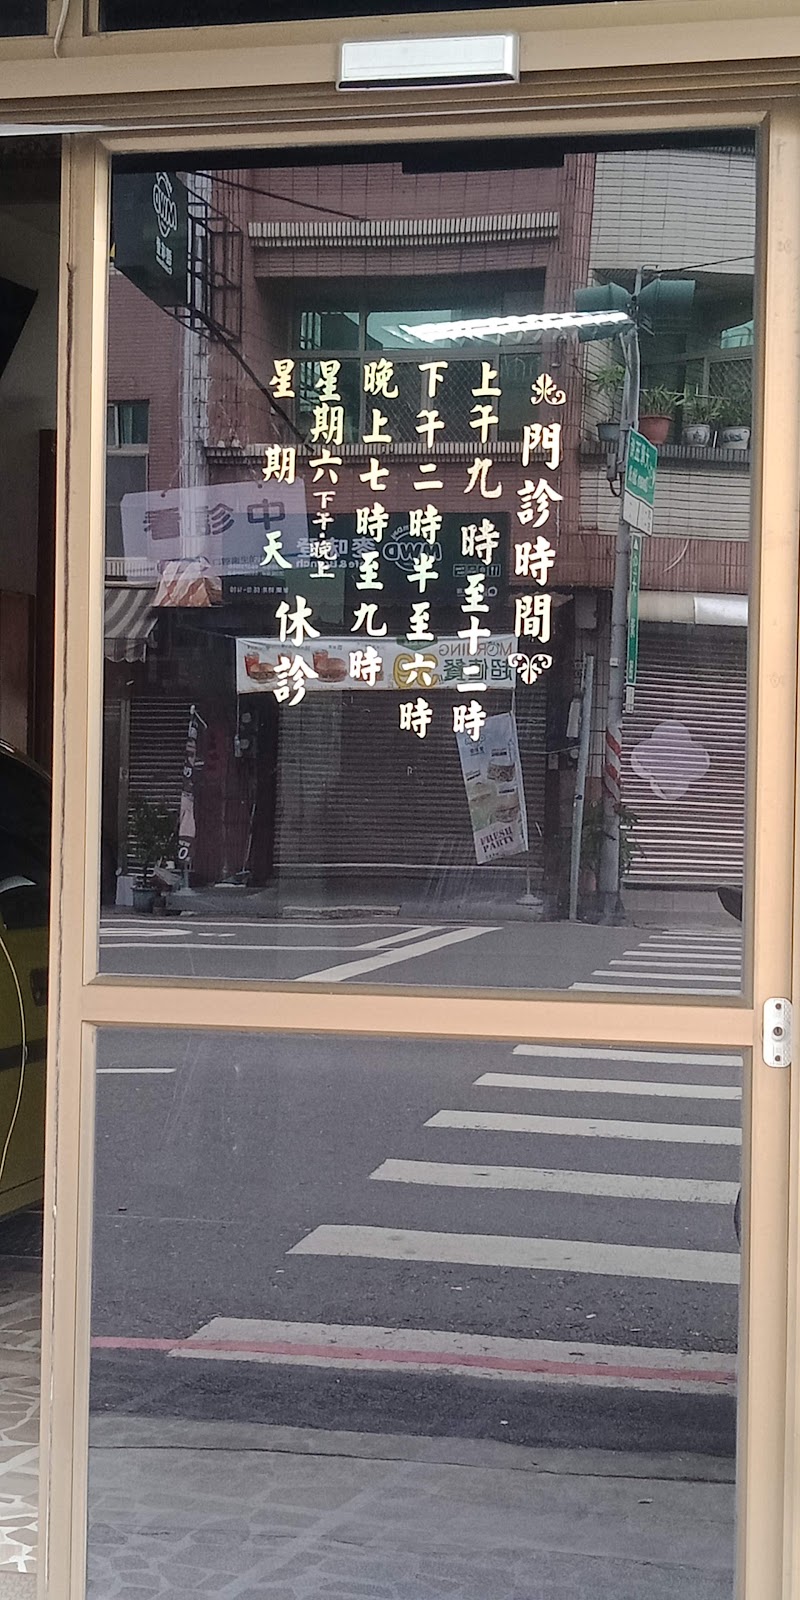 門診時間
上午九時至十二時
下午二時半至六時
晚上七時至九時
星期六下午·晚上
星期天
休診
看診中
麥味登
MWD
MORNING
超值餐
FRESH
PARTY